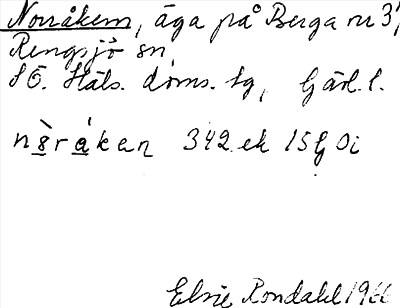 Norråkern, äga på Berga nr 3,
Rengsjö sn
SÖ. Häls. doms. tg, Gävl. l.
nòråkan 342 ek 15G 0i
Elsie Rondahl 1966